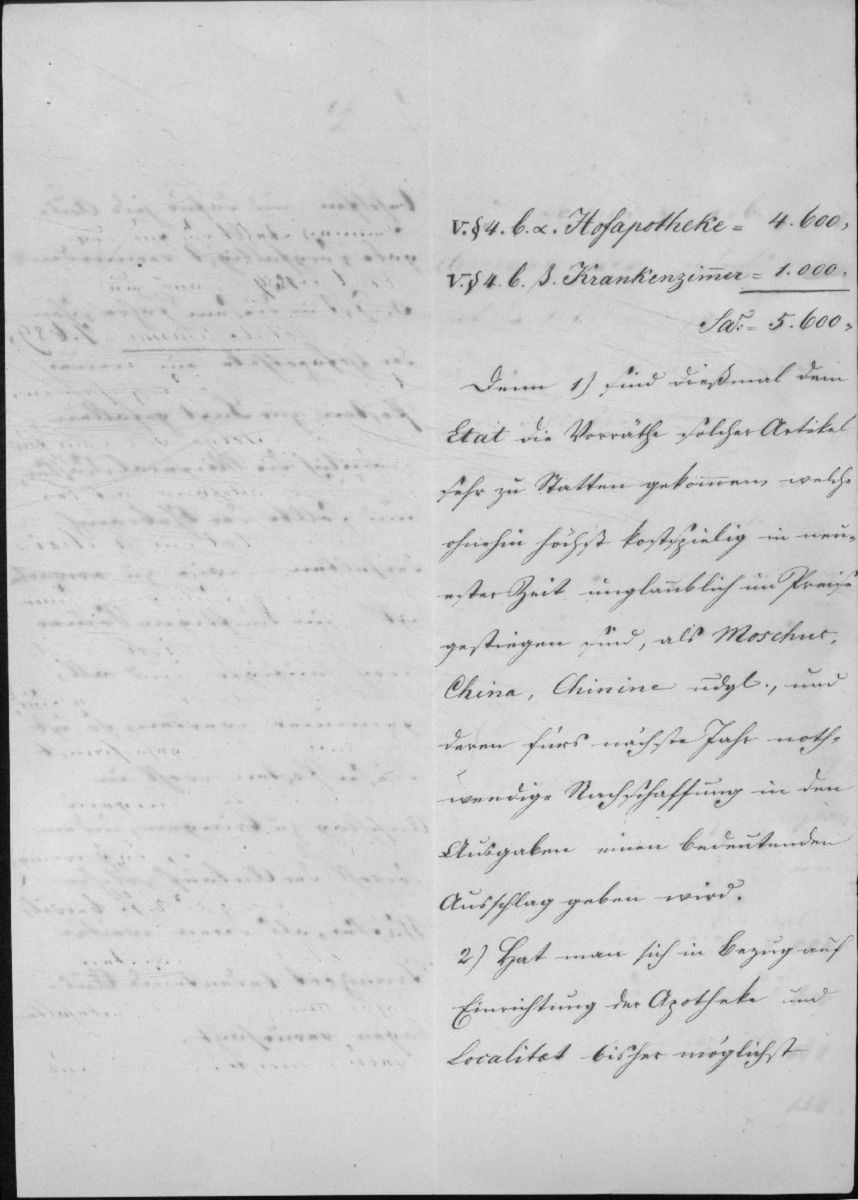 V. § 4. b. α. Hofapotheke = 4.600,
V. § 4. b. β. Krankenzim̅er = 1.000.
Sa: = 5.600,
Denn 1) sind dießmal dem
Etat die Vorräthe solcher Artikel
sehr zu Statten gekom̅en, welche
ohnehin höchst kostspielig in neu-
ester Zeit unglaublich im Preise
gestiegen sind, als Moschus,
China, Chinine udgl., und
deren fürs nächste Jahr noth-
wendige Nachschaffung in den
Ausgaben einen bedeutenden
Ausschlag geben wird.
2) Hat man sich in Bezug auf
Einrichtung der Apotheke und
Localitæt bisher möglichst